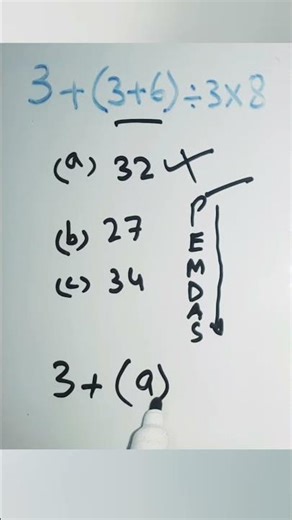 3+(3+6)÷3×8
(a) 32 ×
(b) 27
(c) 34
PEMDAS
3+(9)